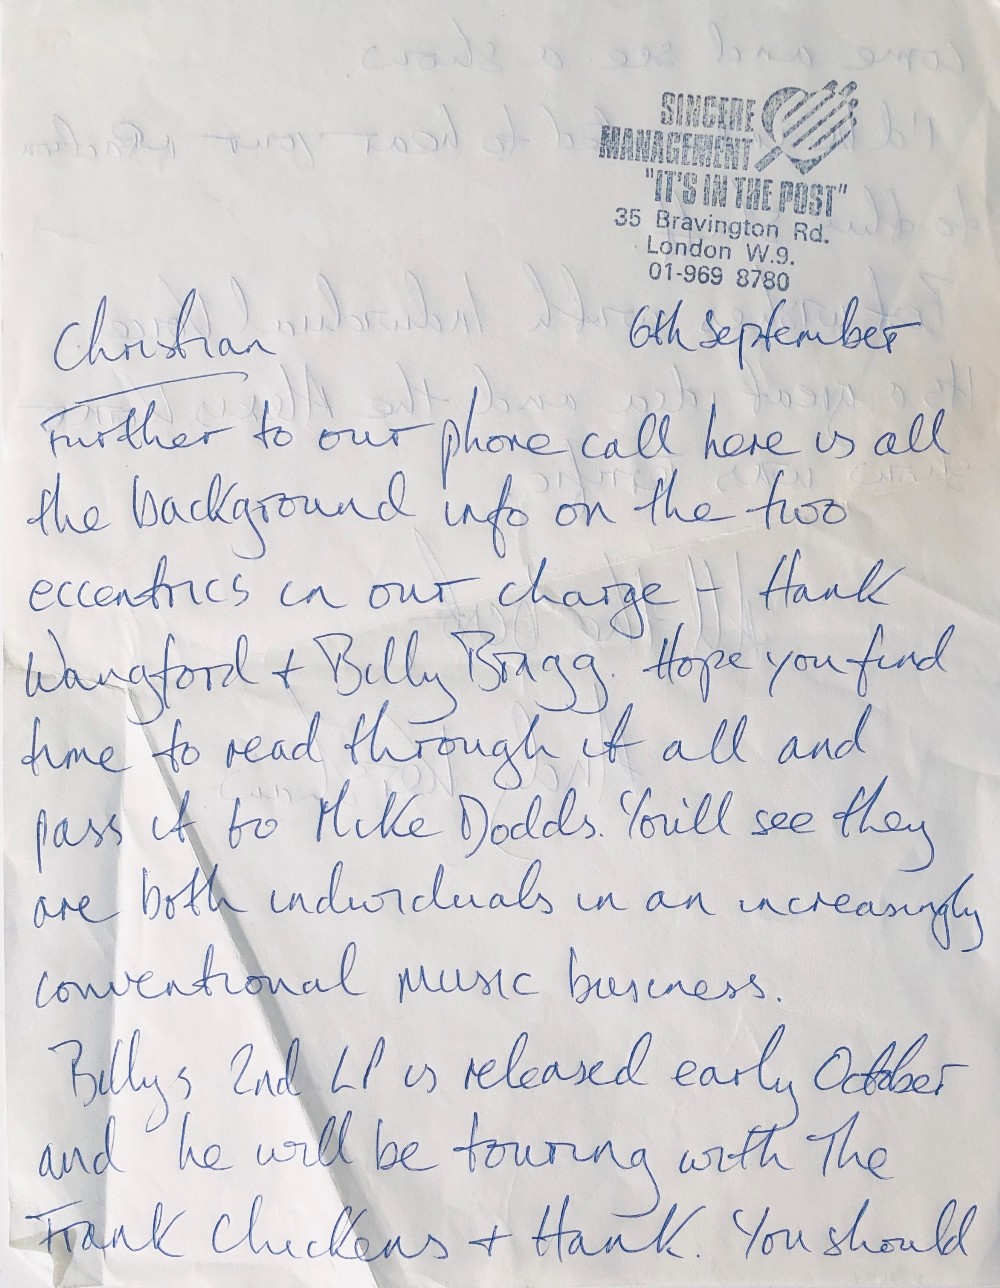 SINCERE
MANAGEMENT
"IT'S IN THE POST"
35 Bravington Rd.
London W.9.
01-969 8780
Christian 6th September
Further to our phone call here is all
the background info on the two
eccentrics in our charge - Hank
Wangford + Billy Bragg. Hope you find
time to read through it all and
pass it to Mike Dodds. You'll see they
are both individuals in an increasingly
conventional music business.
Billys 2nd LP is released early October
and he will be touring with The
Frank Chickens + Hank. You should